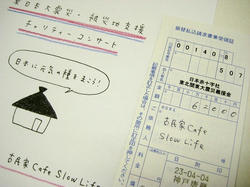 東日本大震災・被災地支援
チャリティーコンサート
日本に元気の種をまこう!
古民家 Cafe Slow Life
振替払込請求書兼受領証
00140 8
507
日本赤十字社
東北関東大震災義援金
62000
古民家Cafe
Slow Life
23-04-04
神戸